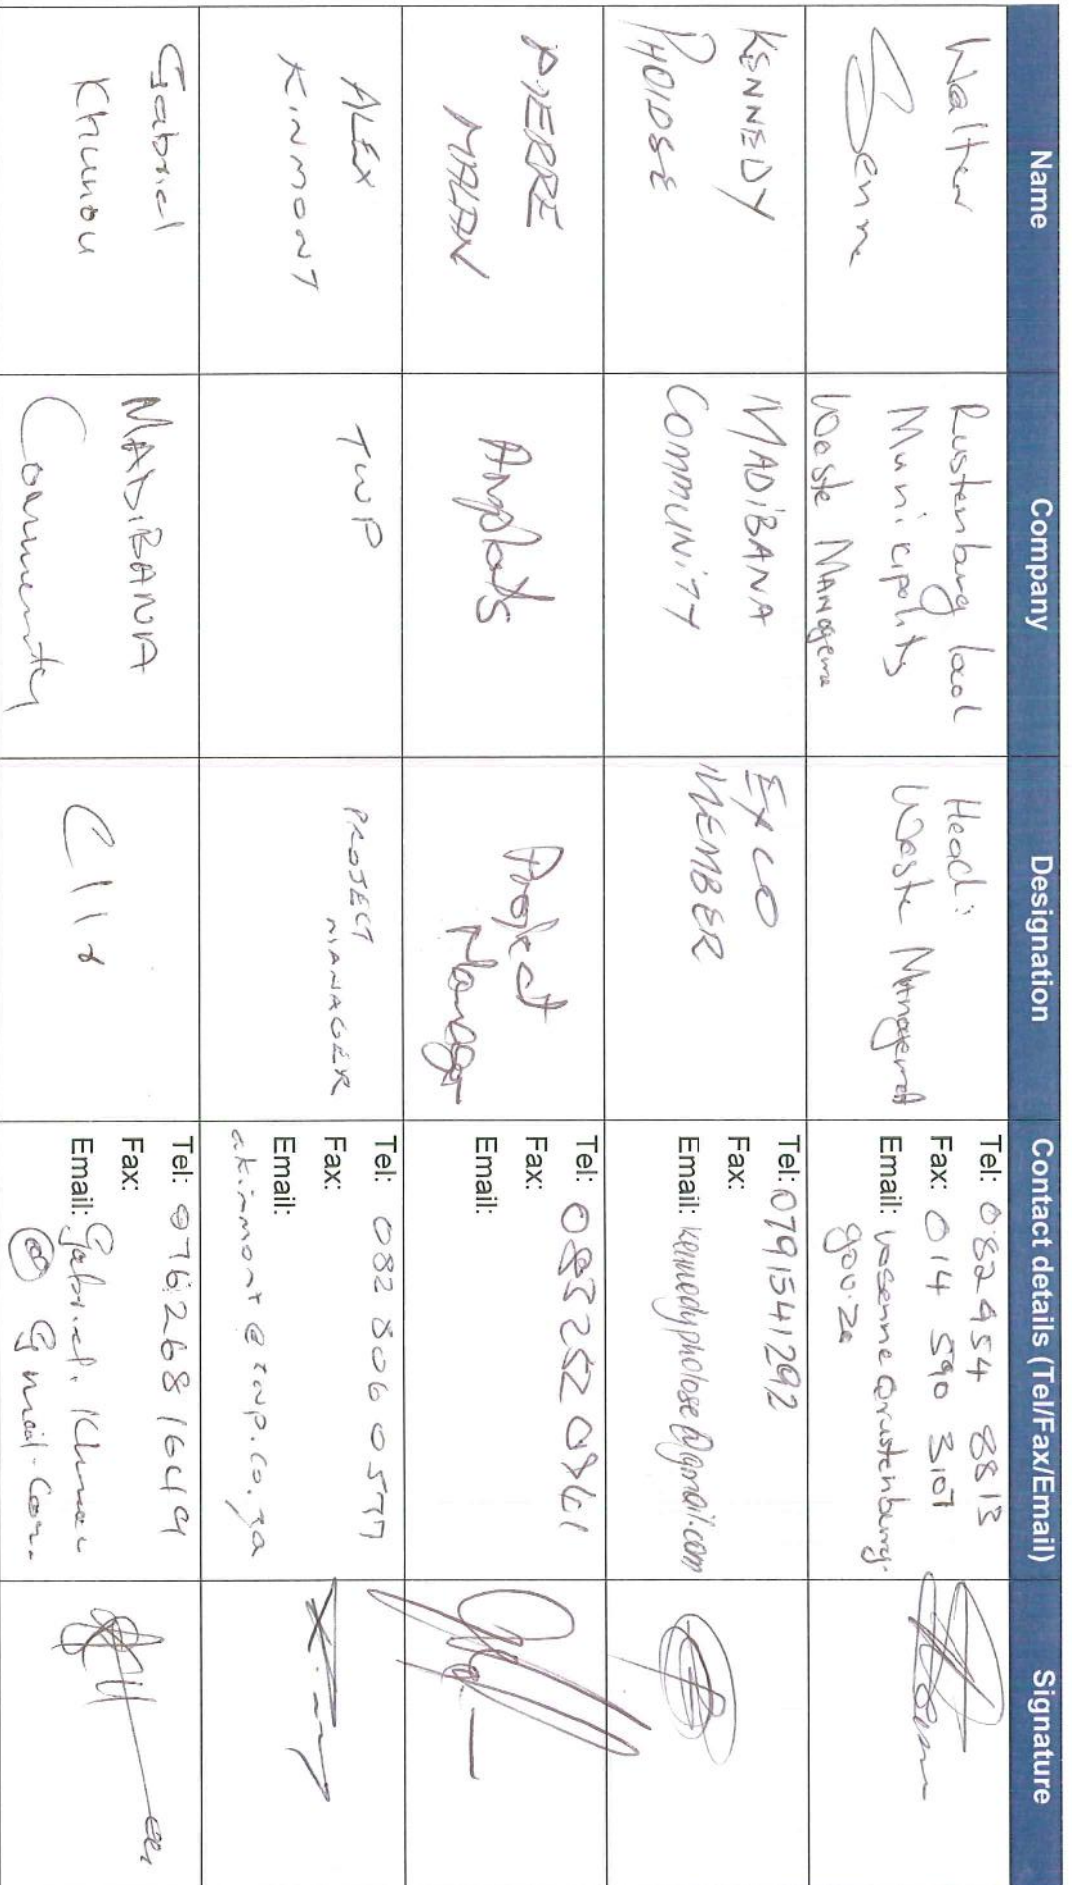 Name Company Designation Contact details (Tel/Fax/Email) Signature
Walter
Senne
Rustenburg local
Municipality
Waste Manageme
Head:
Waste Management
Tel: 082 454 8813
Fax: 014 590 3107
Email: vosenne@rustenburg.
gov.za
KENNEDY
PHOLOSE
MADIBANA
COMMUNITY
EXCO
MEMBER
Tel: 0791541292
Fax:
Email: kennedypholose@gmail.com
PIERRE
MALAN
Amplats
Project
Manager
Tel: 083 252 0941
Fax:
Email:
ALEX
KINMONT
TWP
PROJECT
MANAGER
Tel: 082 806 0577
Fax:
Email:
akinmont@twp.co.za
Gabriel
Khunou
MADIBANA
Community
Cllr
Tel: 076 268 1649
Fax:
Email: Gabriel.Khunou
@ gmail.com